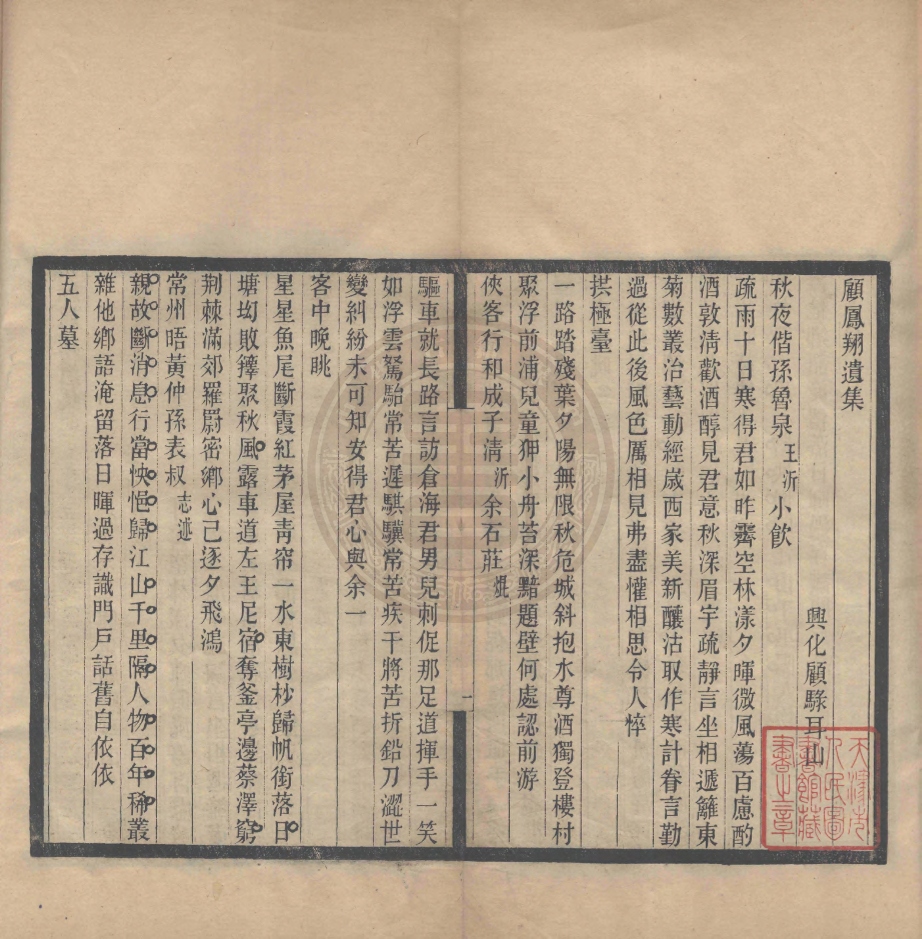 顧鳳翔遺集
興化顧騄耳山
秋夜偕孫魯泉王沂小飲
疏雨十日寒得君如昨霽空林漾夕暉微風蕩百慮酌
酒敦淸歡酒醇見君意秋深眉宇疏靜言坐相遞籬東
菊數叢治藝動經歲西家美新釀沽取作寒計眷言勤
過從此後風色厲相見弗盡懽相思令人悴
拱極臺
一路踏殘葉夕陽無限秋危城斜抱水尊酒獨登樓村
聚浮前浦兒童狎小舟苔深黯題壁何處認前游
俠客行和成子淸沂余石莊焜
驅車就長路言訪倉海君男兒刺促那足道揮手一笑
如浮雲駑駘常苦遲騏驥常苦疾干將苦折鉛刀澀世
變糾紛未可知安得君心與余一
客中晚眺
星星魚尾斷霞紅茅屋靑帘一水東樹杪歸帆銜落日
塘坳敗籜聚秋風露車道左王尼宿奪釜亭邊蔡澤窮
荆棘滿郊羅罻密鄉心已逐夕飛鴻
常州晤黃仲孫表叔志述
親故斷消息行當怏悒歸江山千里隔人物百年稀叢
雜他鄉語淹留落日暉過存識門戶話舊自依依
五人墓
天津市
人民圖
書館藏
書之章